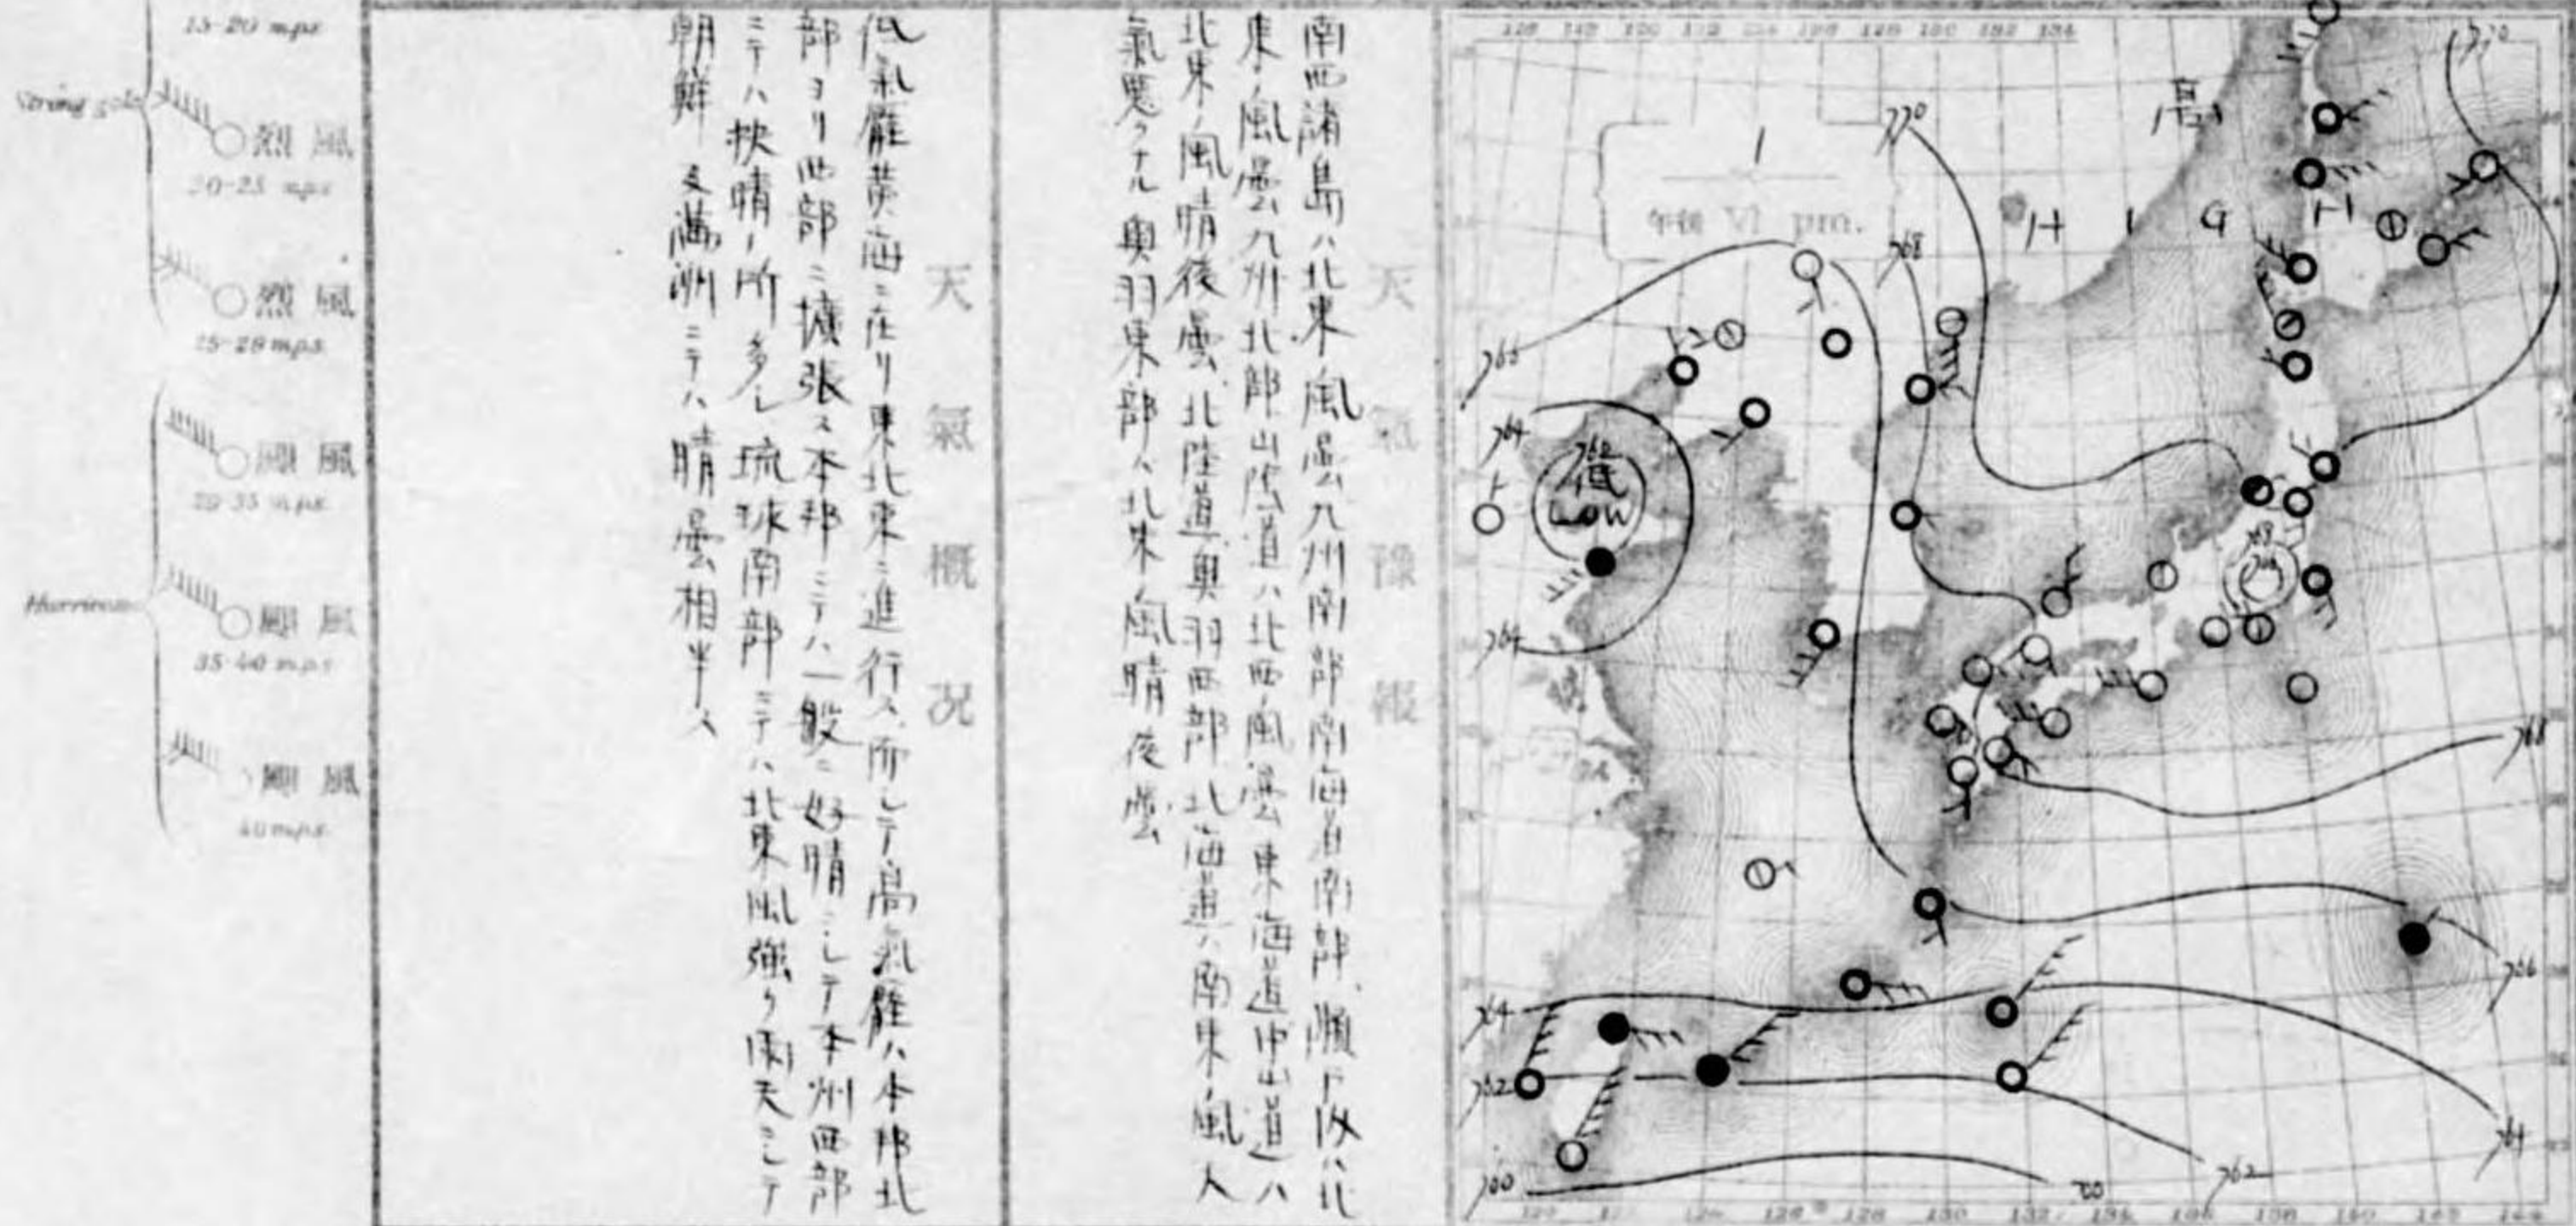 15-20 mps
Strong gale
烈風
20-25 mps
烈風
25-28 mps
Hurricane
颶風
颶風
35-40 mps
颶風
40 mps
天氣豫報
南西諸島ハ北東ノ風曇九州南部南海道南部
東ノ風曇九州北部山陰道ハ北西ノ風曇東海道中山道ハ
北東ノ風晴後曇北陸道奥羽西部北海道ハ南東ノ風
氣悪クナル奥羽東部ハ北東ノ風晴後曇
天氣概況
低氣壓黄海ニ在リ東北東ニ進行ス而シテ高氣壓ハ本邦北
部ヨリ西部ニ擴張ス本邦ニテハ一般ニ好晴ニシテ本州西部
ニテハ快晴ノ所多シ琉球南部ニテハ北東風強ク雨天ニシテ
朝鮮及滿洲ニテハ晴曇相半ス
1
午後 VI pm.
高
HIGH
770
770
768
766
764
低
LOW
764
768
766
764
762
764
762
760
760